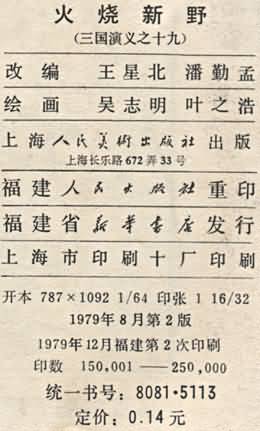 火烧新野
(三国演义之十九)
改编 王星北 潘勤孟
绘画 吴志明 叶之浩
上海人民美術出版社出版
上海长乐路672弄33号
福建人民出版社重印
福建省新华書店发行
上海市印刷十厂印刷
开本 787×1092 1/64 印张 1 16/32
1979年8月第2版
1979年12月福建第2次印刷
印数 150,001——250,000
统一书号: 8081·5113
定价: 0.14元